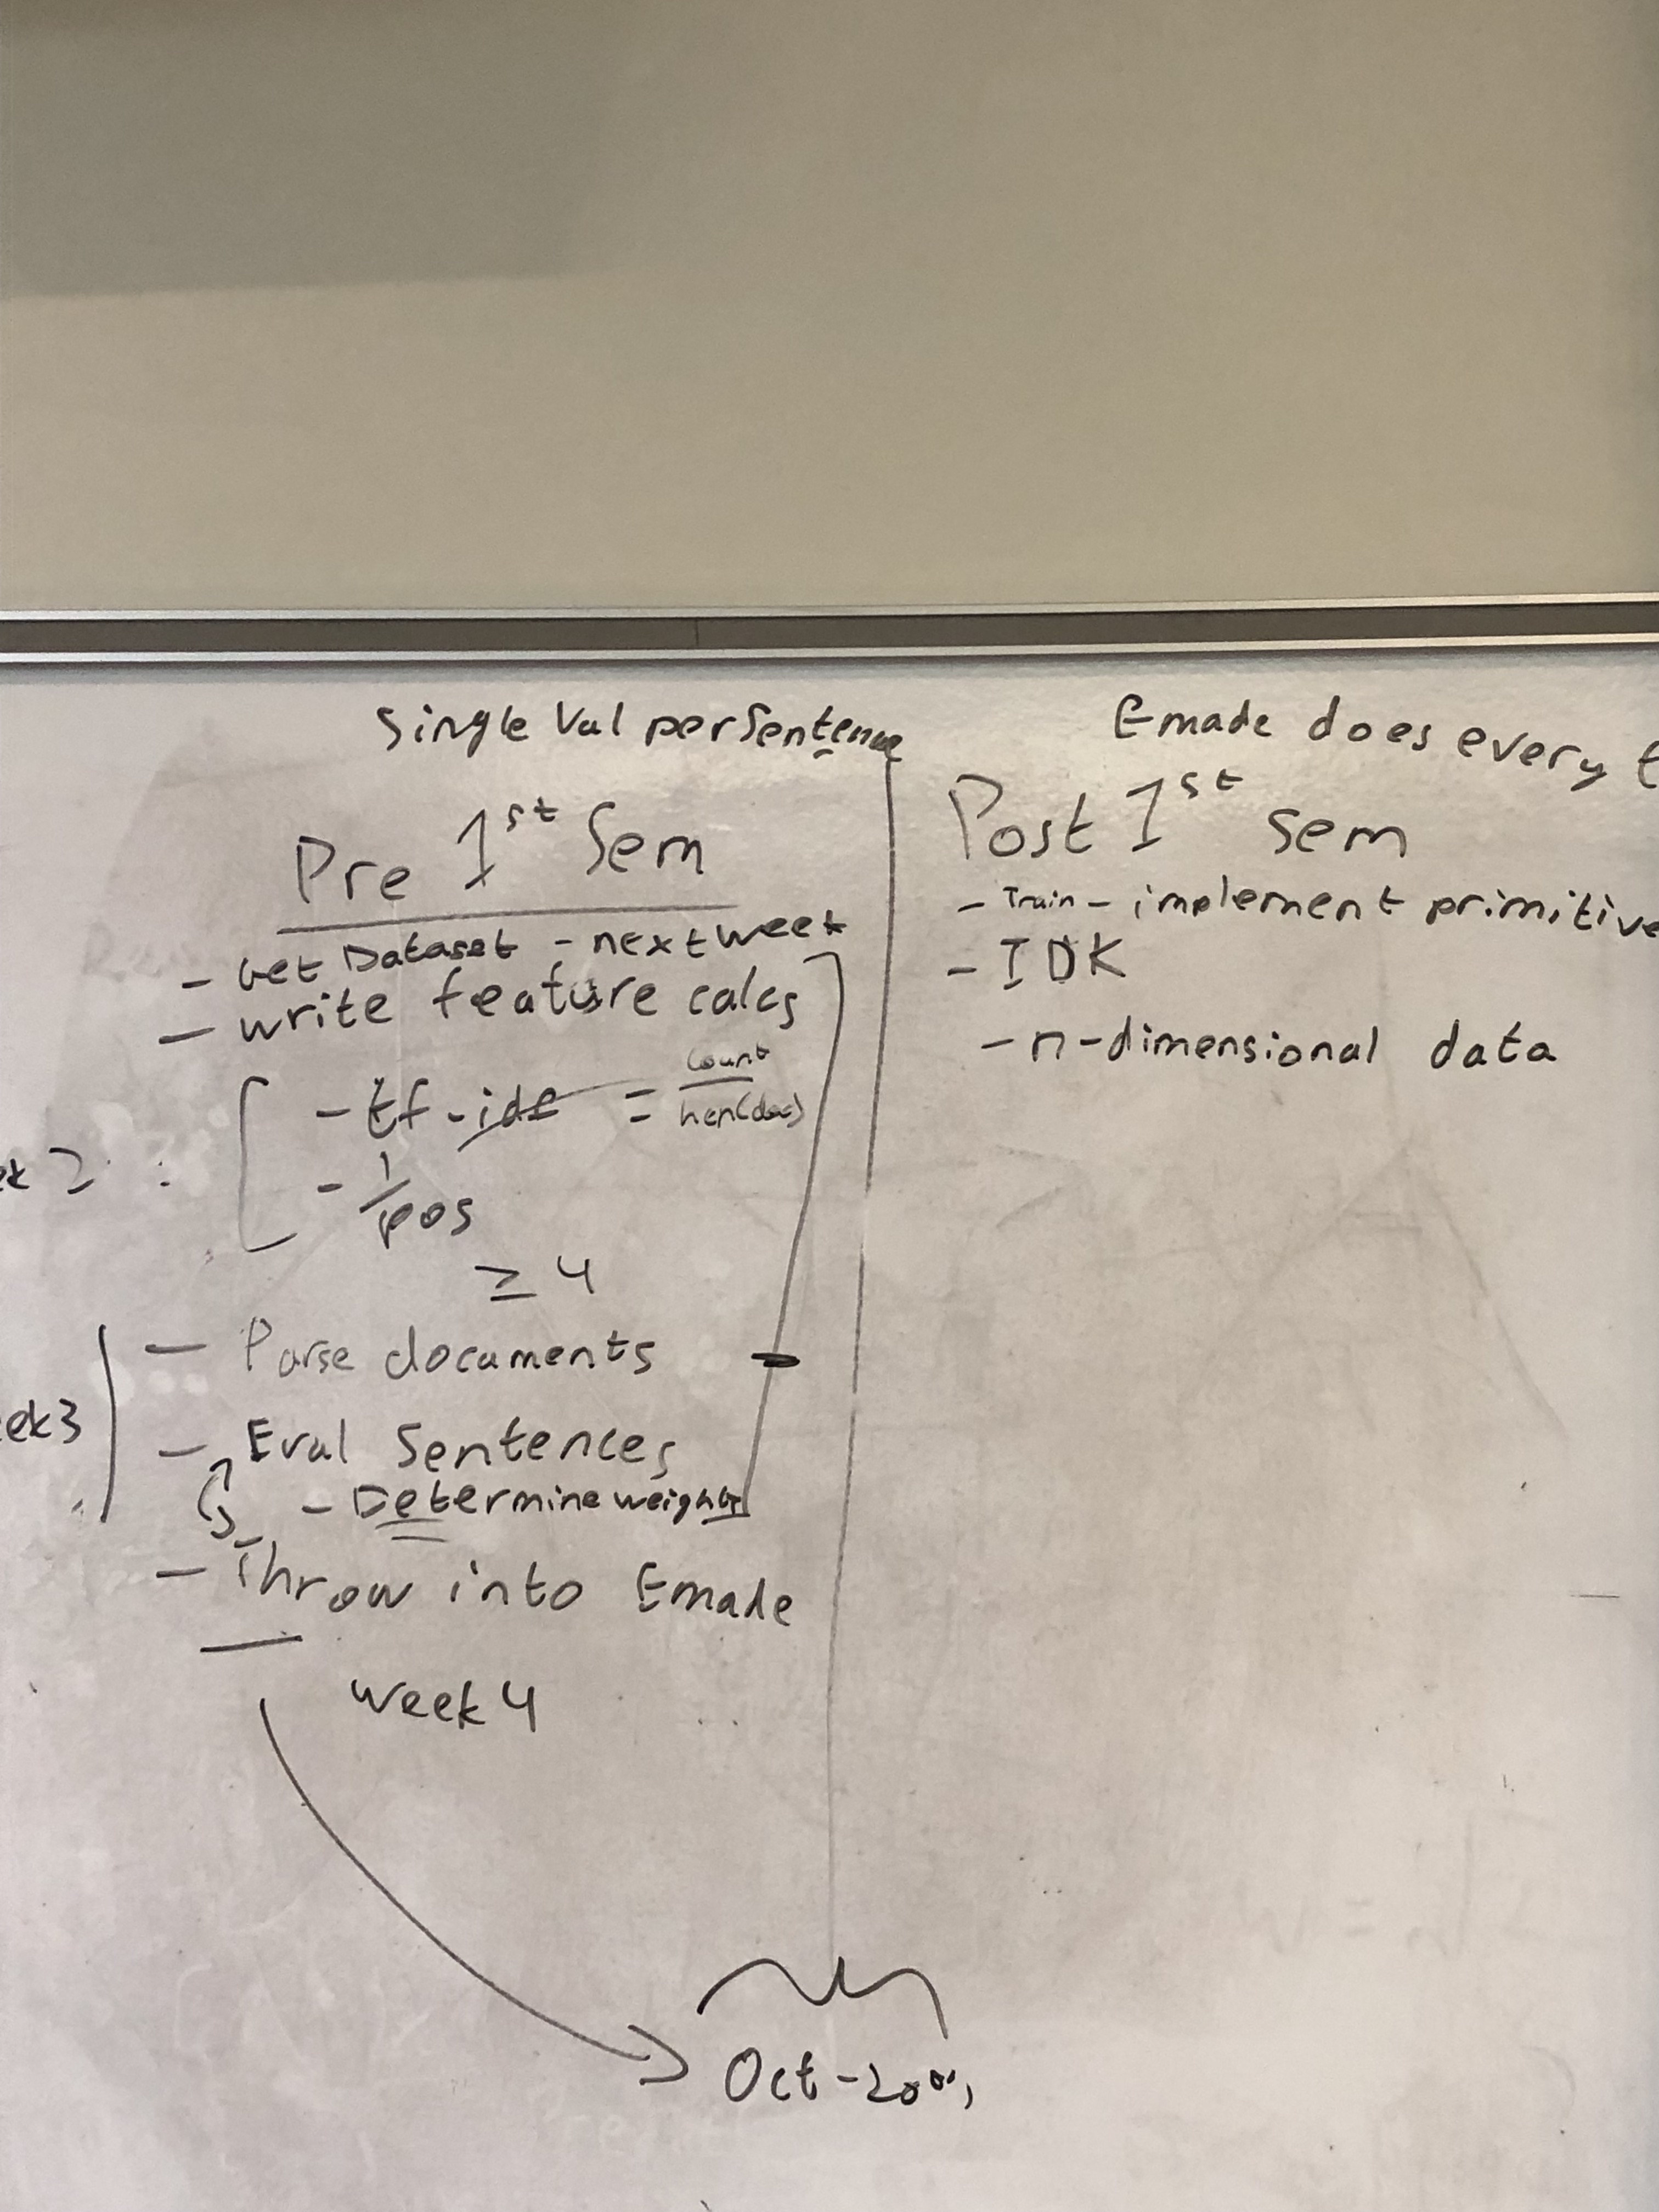 Single Val per Sentence
Pre 1st Sem
- Get Dataset - next week
- write feature calcs
- tf-idf = count/len(doc)
- 1/pos
≥ 4
- Parse documents
ek3
- Eval Sentences
- Determine weights
- Throw into Emade
week 4
Oct-
Emade does every t
Post 1st sem
- Train - implement primitive
- IDK
- n-dimensional data